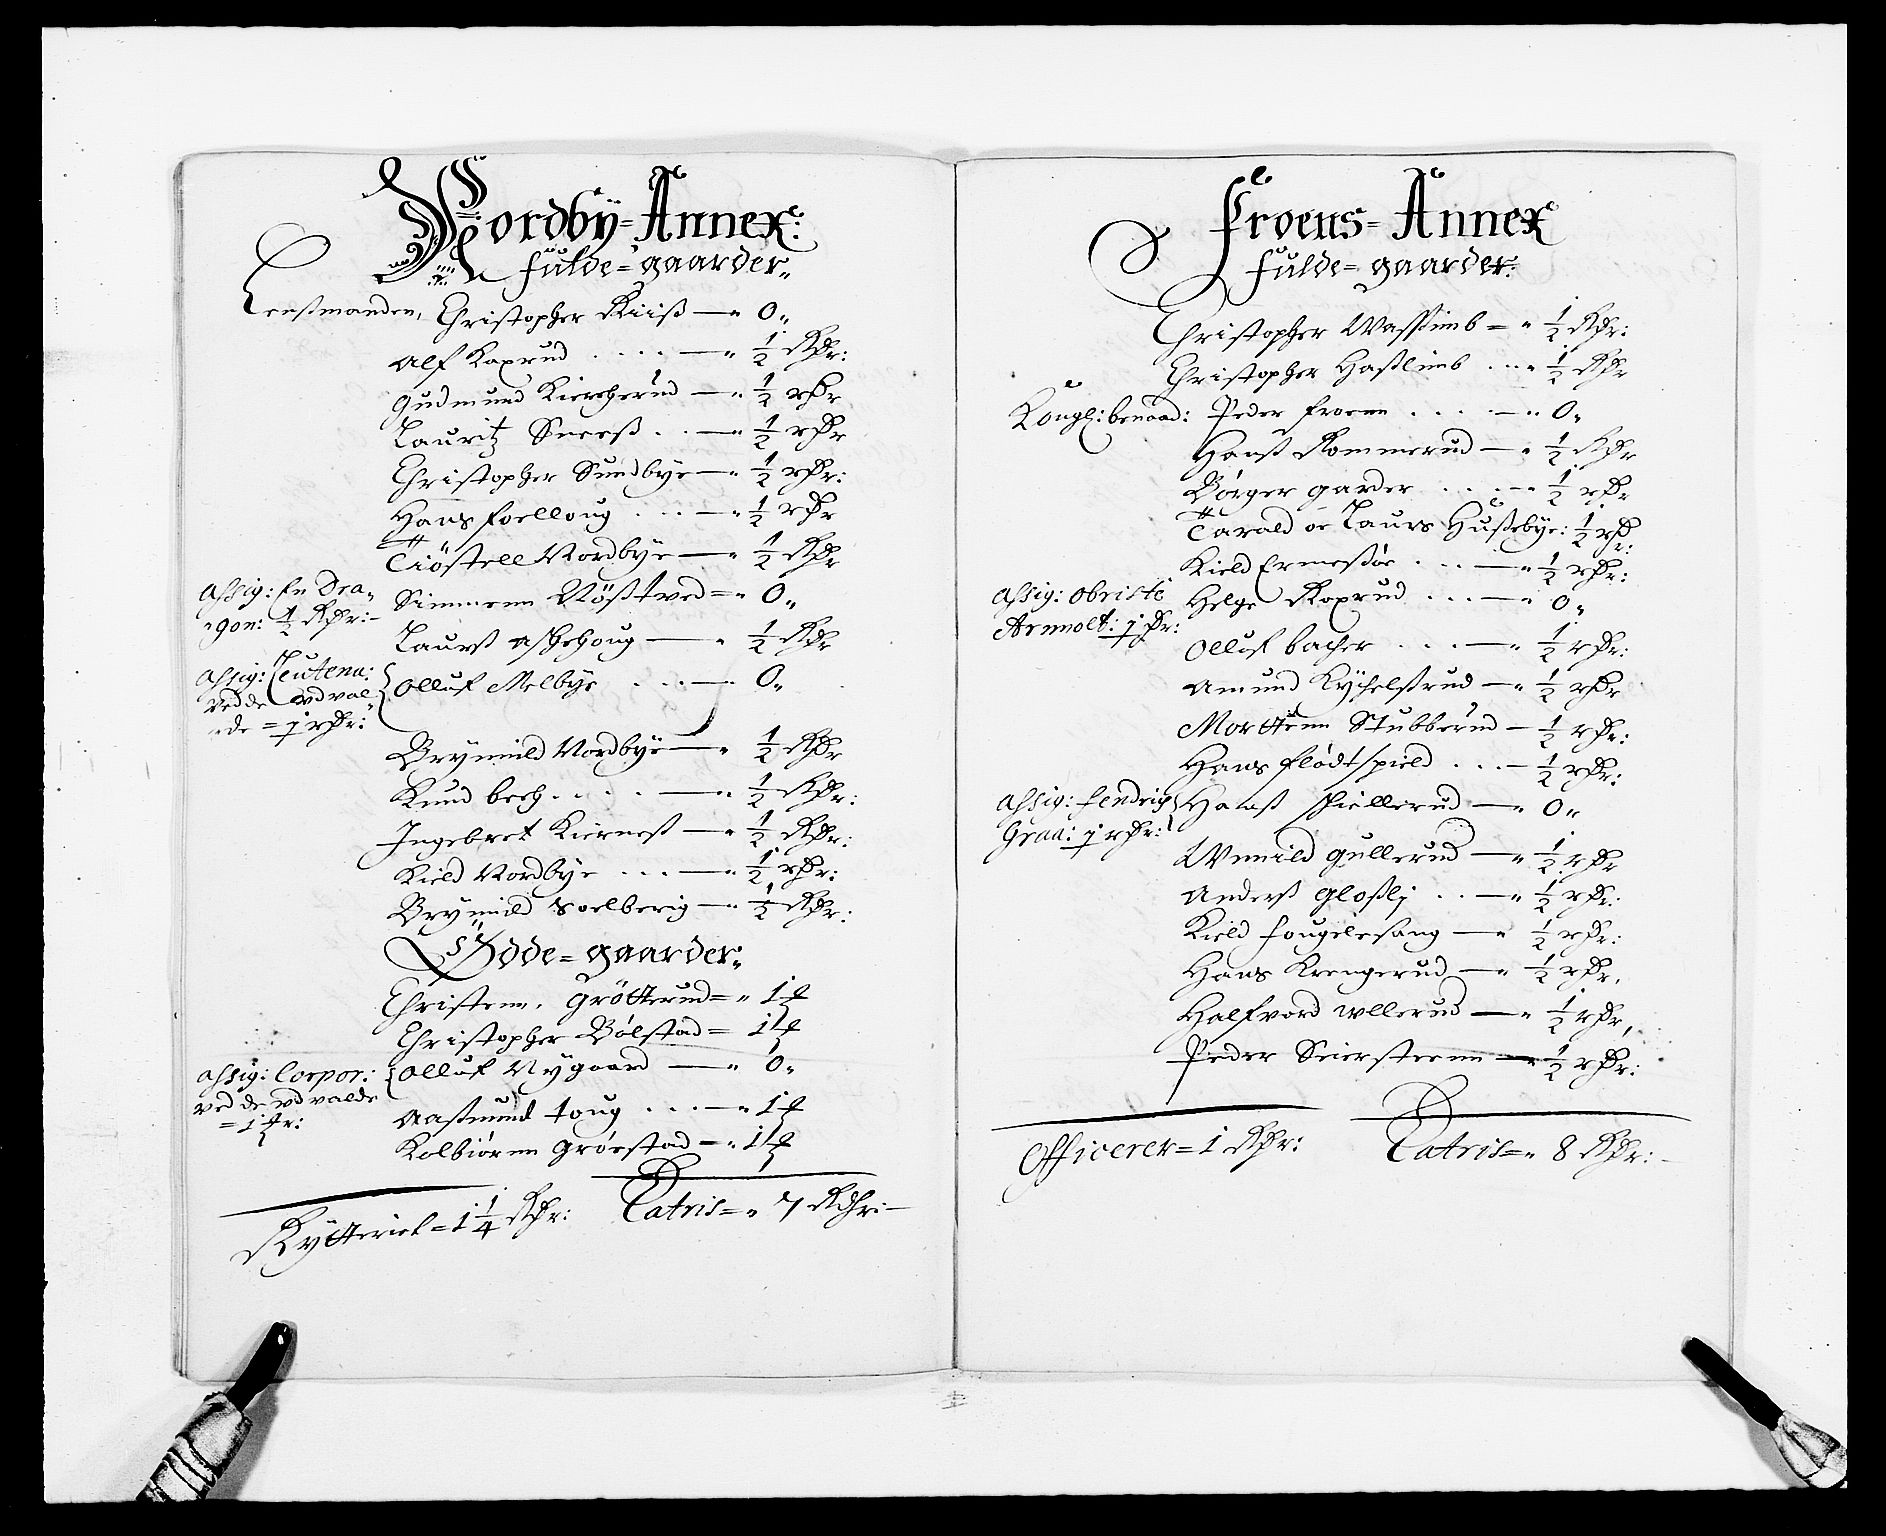 Nordby=Annex:
fulde=gaarder„
Lensmanden, Christopher Riiss — „ 0„
Alf Kaxrud .... — „ 1/2 Rdr:
Gudmund Kiercherud — „ 1/2 rdr
Lauritz Sneess .. — „ 1/2 rdr
Christopher Sundbye — „ 1/2 rdr:
Hans foelloug ... — „ 1/2 rdr
Tiöstell Nordbye — „ 1/2 Rdr
Assig: En Dra„
gon: 1/2 Rdr:—
Simmenn Röstved = „ 0„
Laurss Aschehoug — „ 1/2 Rdr
Assig: Leutena:
ved de vdval„
de = j rdr:
Olluf Melbye ... — 0„
Brynnild Nordbye — „ 1/2 Rdr
Knud bech .... — „ 1/2 Rdr:
Ingebret Kierness — „ 1/2 Rdr:
Kield Nordbye ... — „ 1/2 rdr:
Brynnild Soelberig — „ 1/2 Rdr:
Ödde=gaarder„
Christenn. Grötterud = „ 1
Christopher Bölstad = 1
Assig: Corpor:
ved de vdvalde
= 1
Olluf Nygaard — „ 0„
Aassmund toug ... — „ 1
Kolbiörnn Gröestad — „ 1
Rytteriet = 1 1/4 Rdr: Latris = „ 7 Rdhr:—
Froens=Annex
fulde=gaarder:
Christopher Wassimb = „ 1/2 Rdr:
Christopher Hasslimb ... „ 1/2 Rdr
Kongl: benaad: Peder froenn .... — „ 0„
Hanss Rommerud — „ 1/2 Rdr
Börger garder ... — „ 1/2 rdr
Tarald oc Laurs Hussebye: 1/2 rdr:
Kield Ermessöe ... — „ 1/2 rdr:
Assig: Obriste
Arnnolt: j dr:
Helge Raxrud ... — „ 0„
Olluf bacher ... — „ 1/2 rdr:
Amund Kychelsrud — „ 1/2 rdr
Morttenn Stubberud — 1/2 rdr:
Hans flödtspield ... — 1/2 rdr:
Assig: fendrich
Graa: j rdr:
Hanss Skiellerud — „ 0„
Wunild gullerud — „ 1/2 rdr
Anderss Glossli .. — „ 1/2 rdr:
Kield fougelesang — „ 1/2 rdr:
Hans Krengerud — „ 1/2 rdr.
Halfvord Wllerud — „ 1/2 rdr,
Peder Seiersteenn — 1/2 rdr:
Officerer = 1 Rdr: Latris = „ 8 Rdr:—